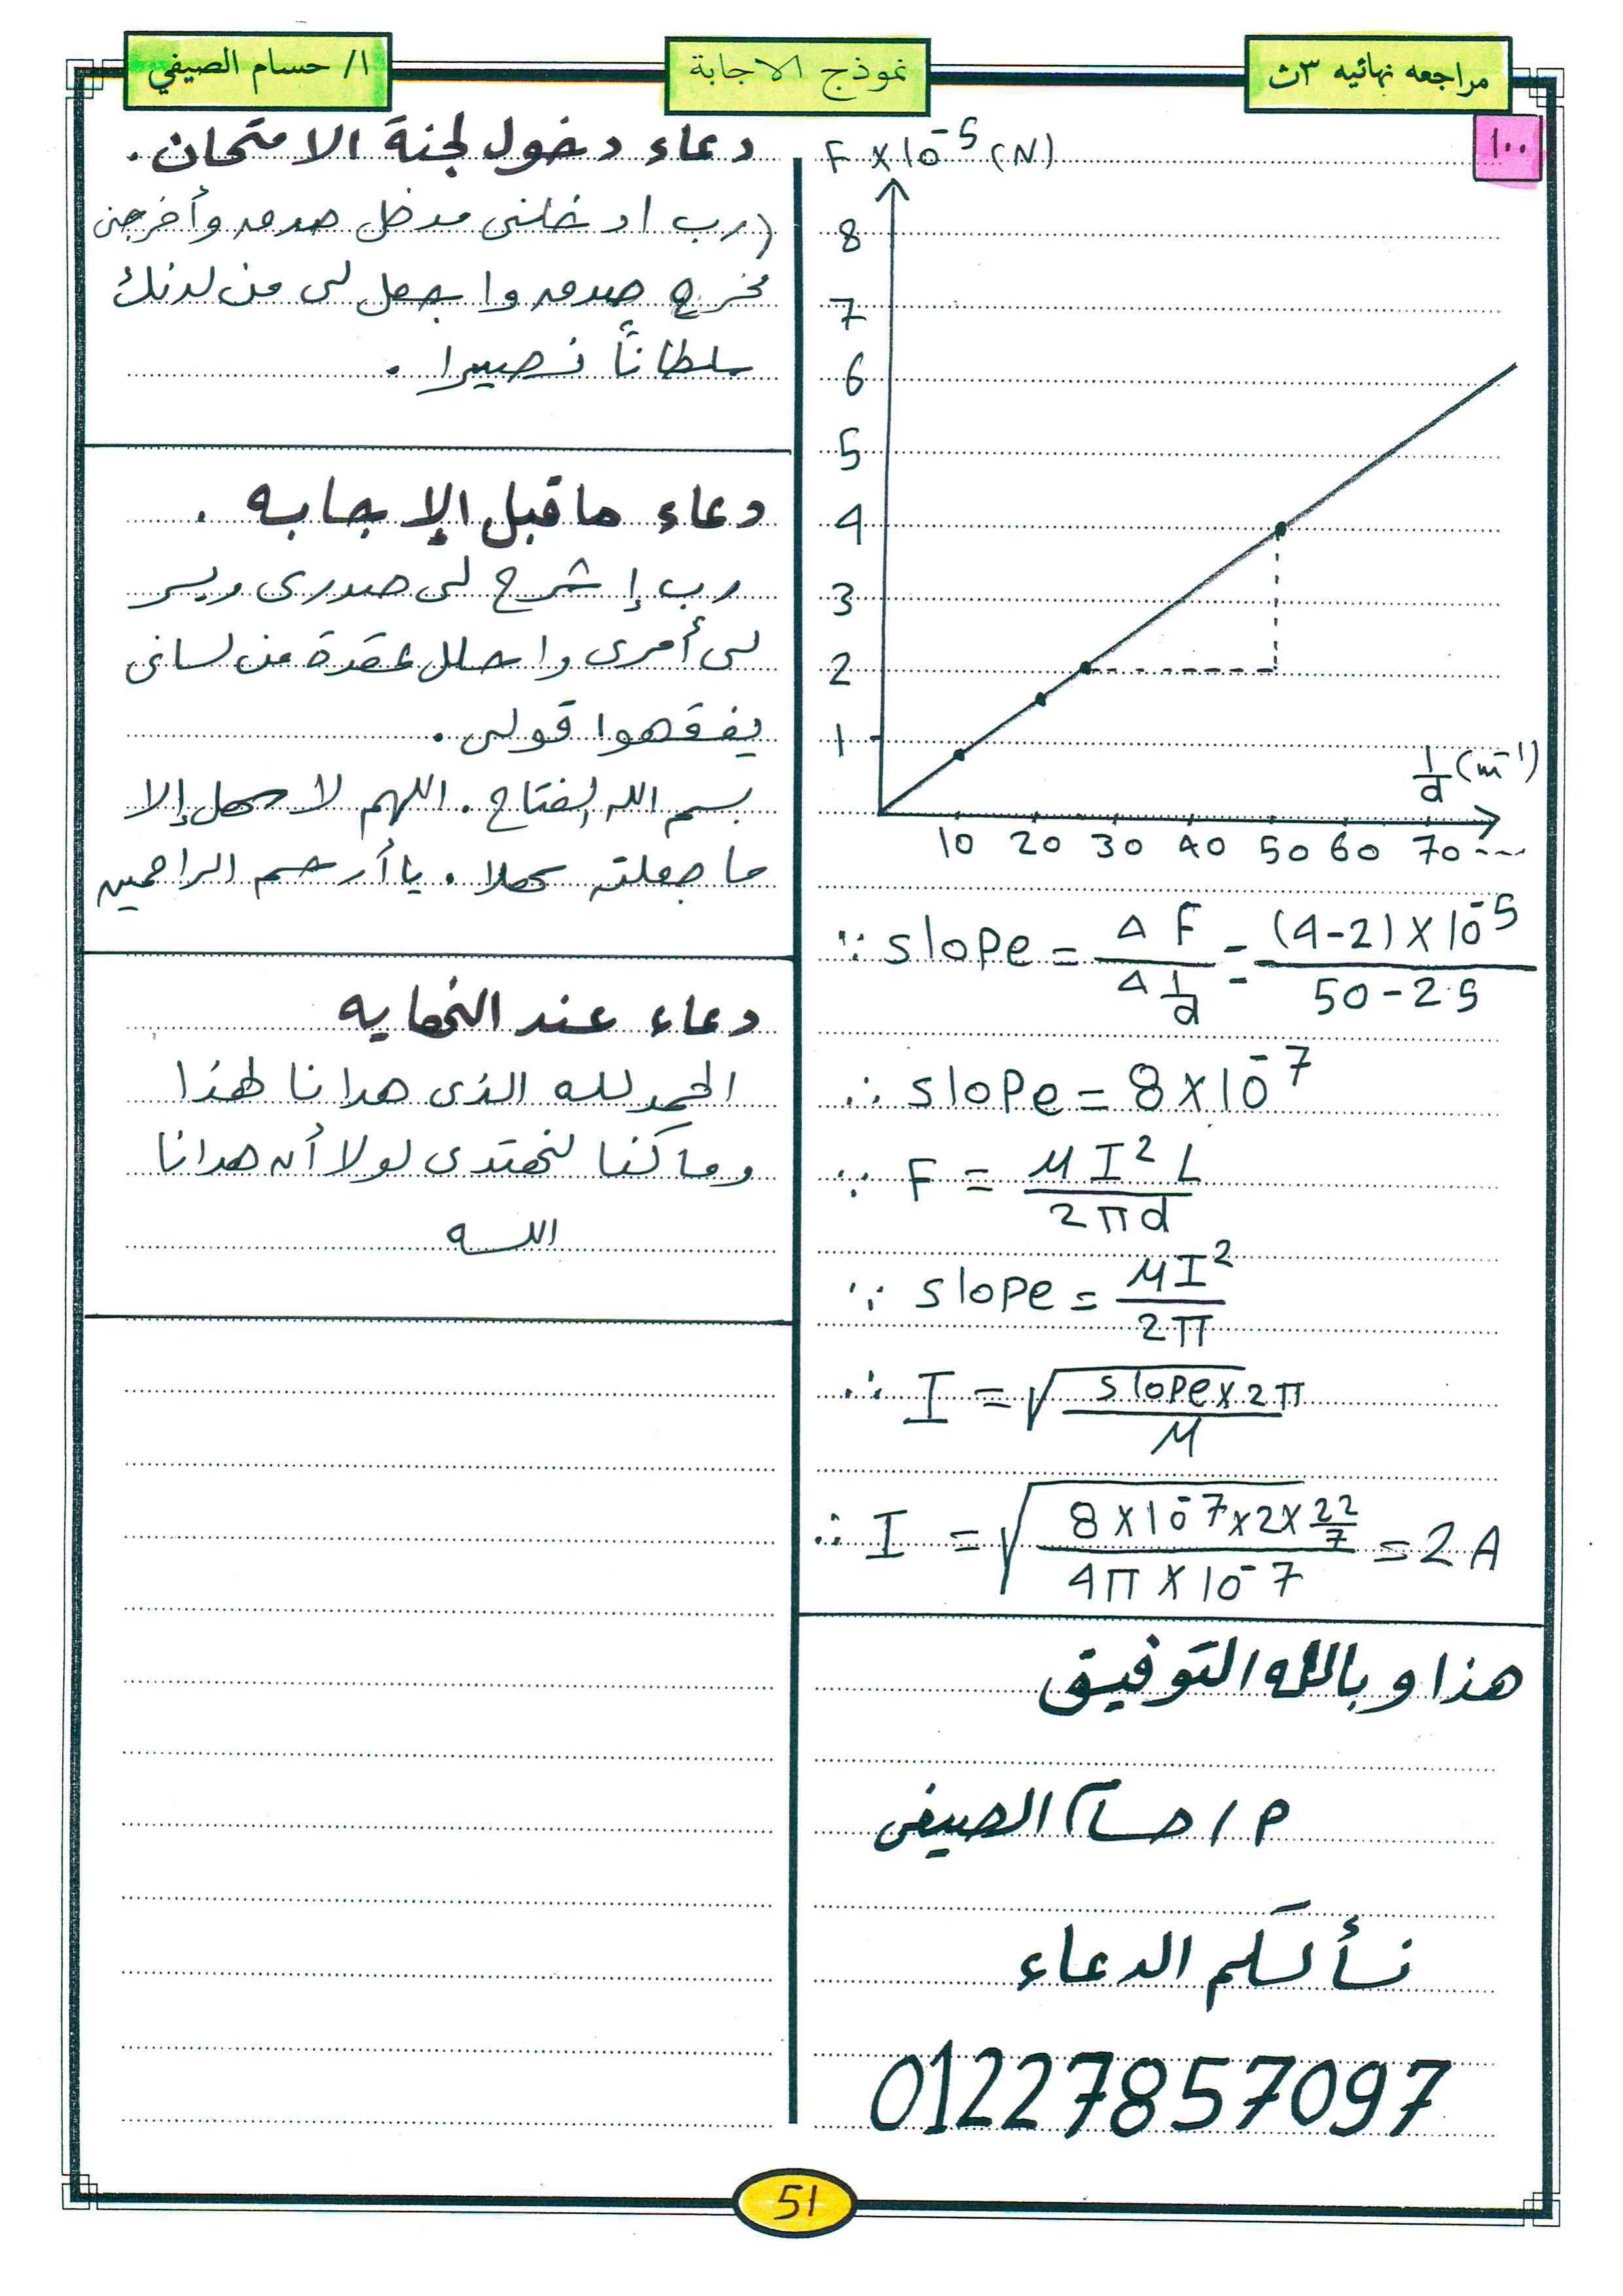 مراجعه نهائيه ٣ث
نموذج الاجابة
ا/ حسام الصيفي
١٠٠
F × 10⁻⁵ (N)
8
7
6
5
4
3
2
1
1/d (m⁻¹)
10 20 30 40 50 60 70 ----
∵ slope = Δ F / Δ 1/d = (4-2) × 10⁻⁵ / 50 - 25
∴ slope = 8 × 10⁻⁷
∵ F = μ I² L / 2πd
∵ slope = μ I² / 2π
∴ I = √(slope × 2π / μ)
∴ I = √(8 × 10⁻⁷ × 2 × 22/7 / 4π × 10⁻⁷) = 2 A
هذا وبالله التوفيق
م / حسام الصيفى
نسألكم الدعاء
01227857097
دعاء دخول لجنة الامتحان.
(رب ادخلنى مدخل صدق وأخرجنى
مخرج صدق واجعل لى من لدنك
سلطاناً نصيرا.
دعاء ماقبل الإجابه.
رب إشرح لى صدرى ويسر
لى أمرى واحلل عقدة من لسانى
يفقهوا قولى.
بسم الله الفتاح. اللهم لا سهل إلا
ما جعلته سهلا. يا أرحم الراحمين
دعاء عند النهايه
الحمد لله الذى هدانا لهذا
وما كنا لنهتدى لولا أن هدانا
الله
51